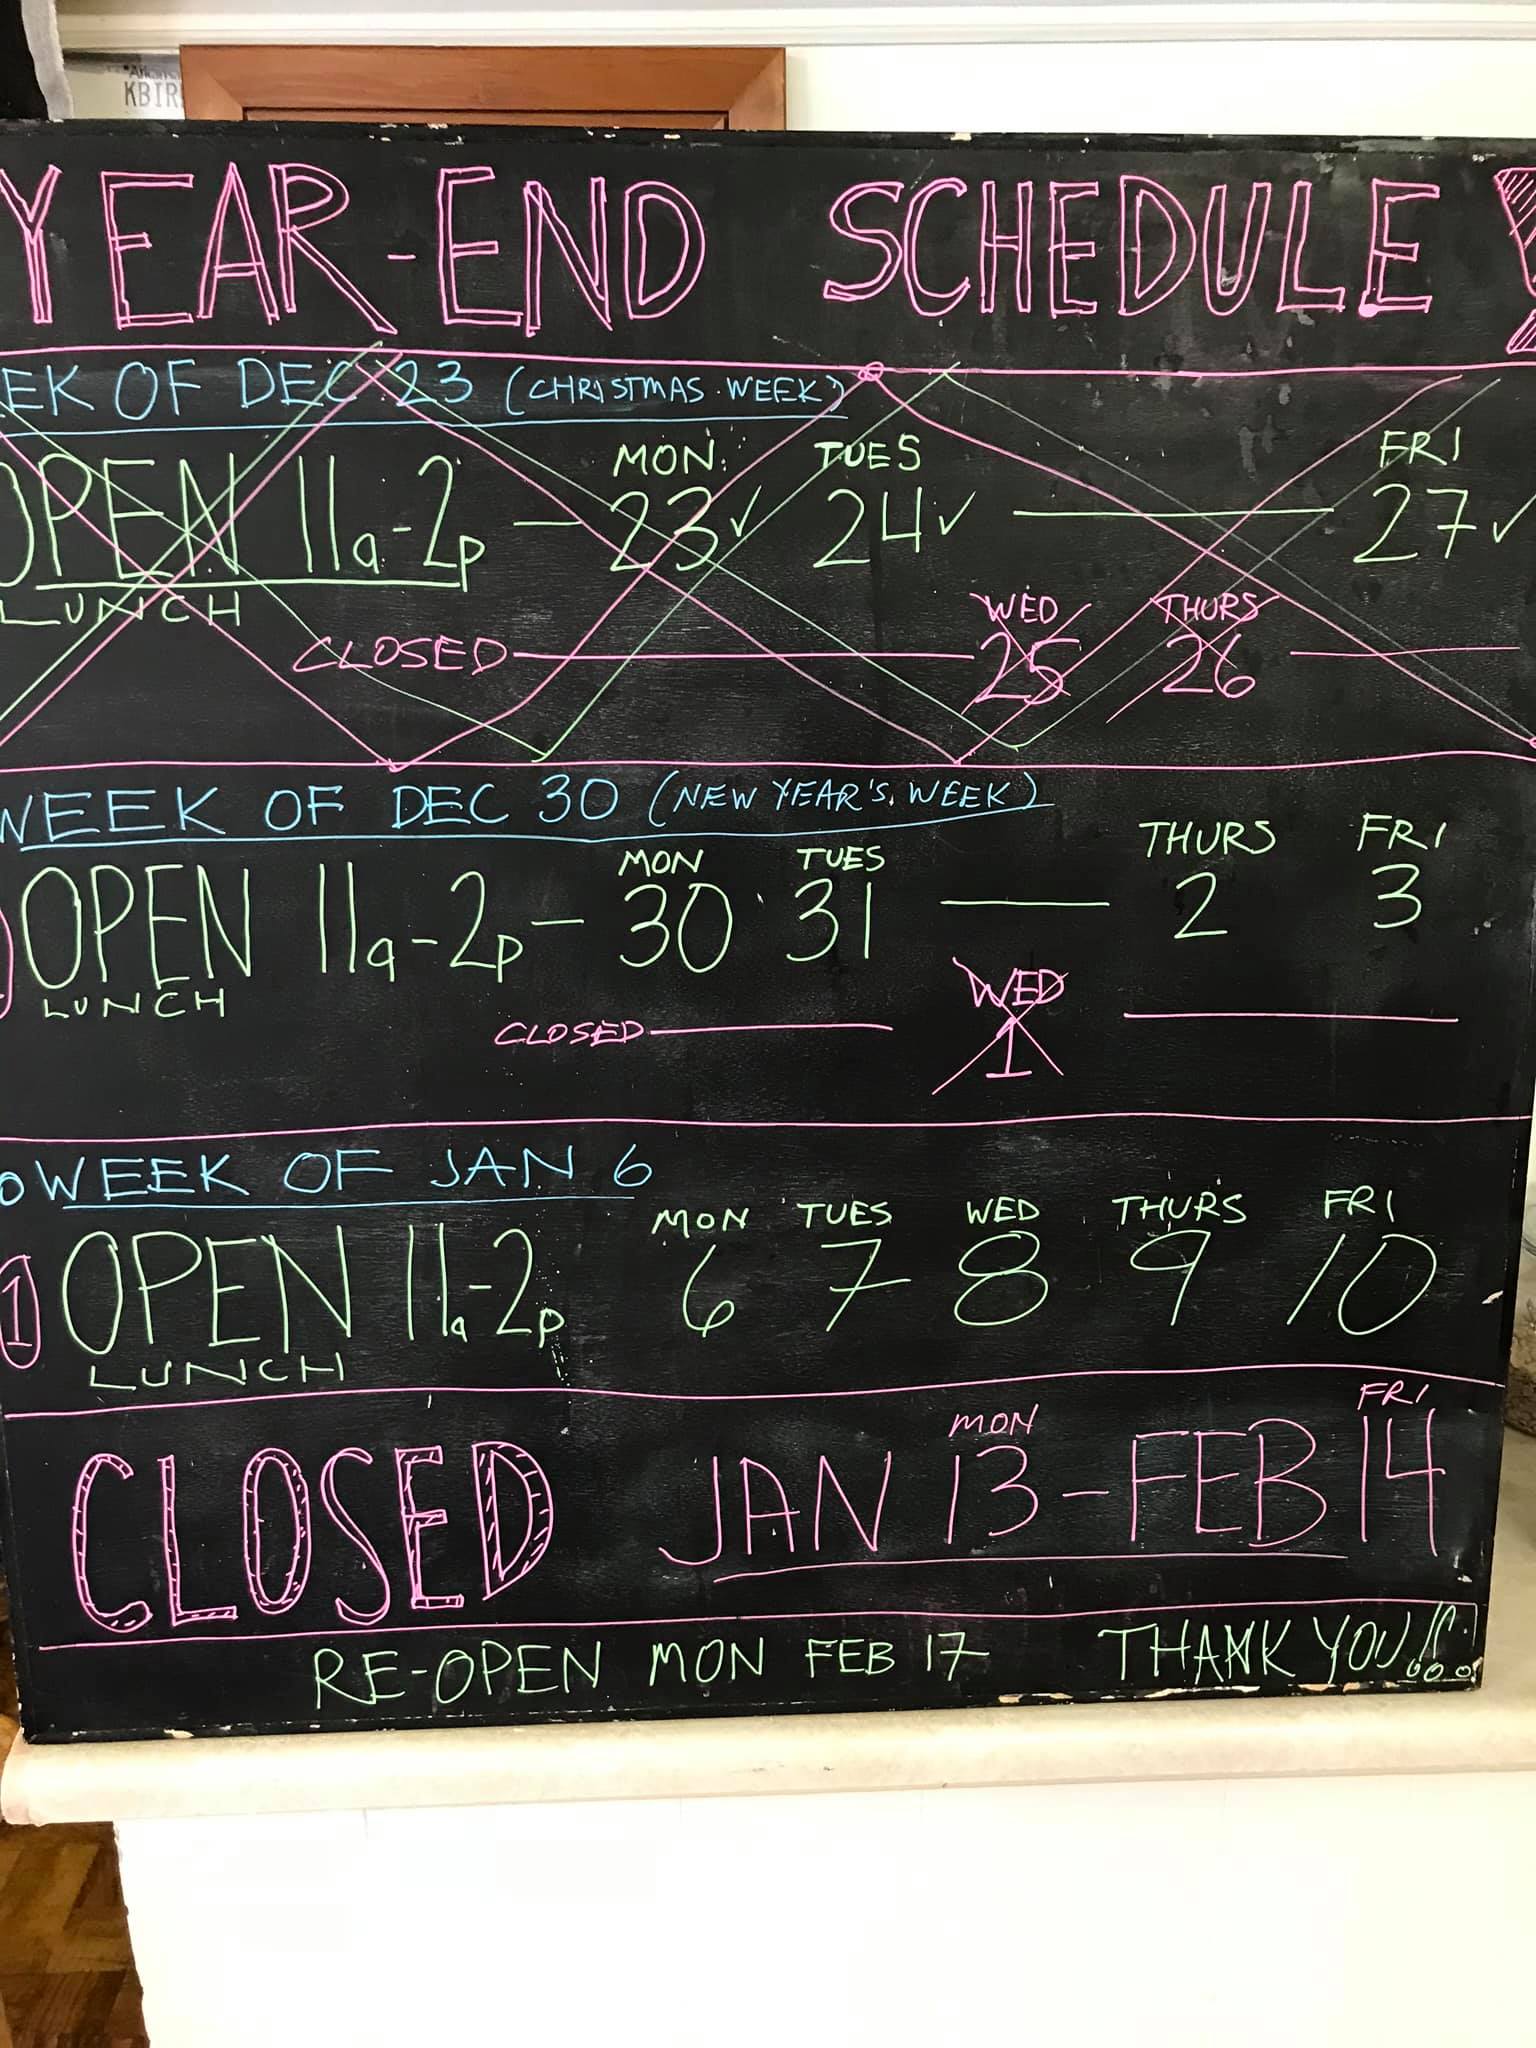 KBIR
YEAR-END SCHEDULE
EEK OF DEC 23 (CHRISTMAS WEEK)
MON TUES FRI
OPEN 11a-2p — 23✓ 24✓ — 27✓
LUNCH
WED THURS
CLOSED — 25 26 —
WEEK OF DEC 30 (NEW YEAR'S WEEK)
MON TUES THURS FRI
OPEN 11a-2p — 30 31 — 2 3
LUNCH
WED
CLOSED — 1 —
WEEK OF JAN 6
MON TUES WED THURS FRI
1 OPEN 11a-2p 6 7 8 9 10
LUNCH
MON FRI
CLOSED JAN 13 - FEB 14
RE-OPEN MON FEB 17 THANK YOU!!